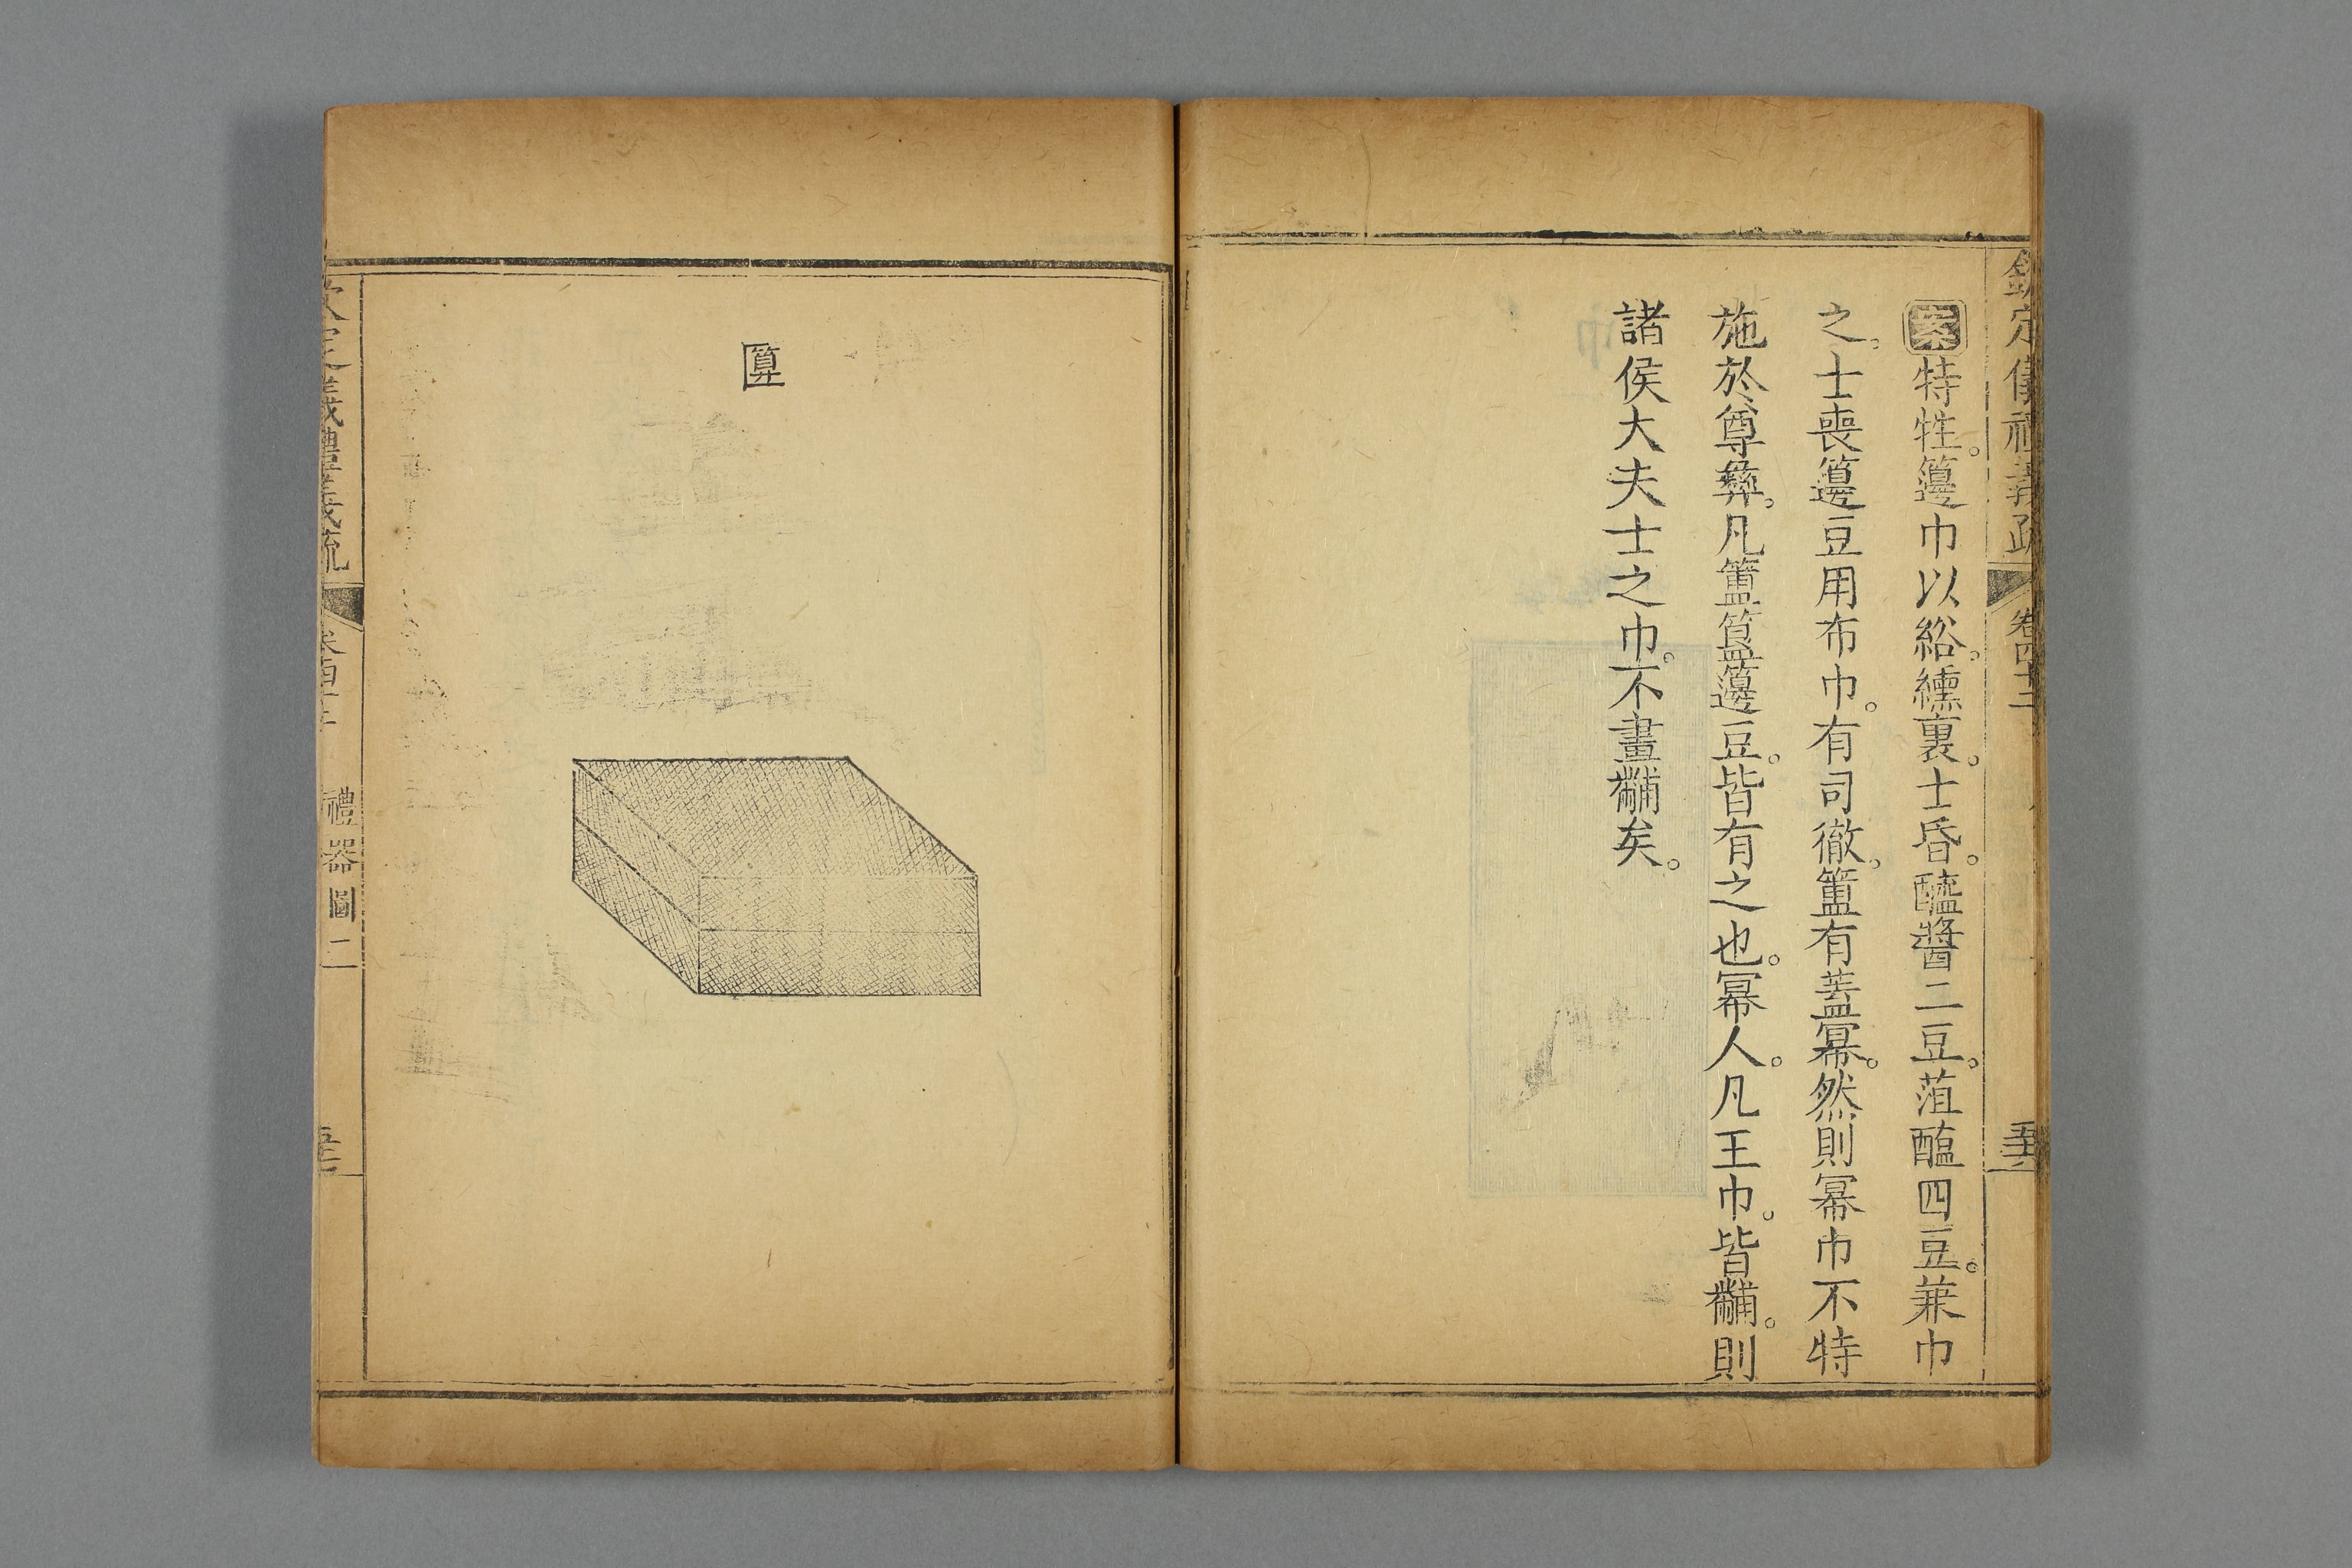 欽定儀禮義疏 卷四十三
案特牲。籩巾以綌。纁裏。士昏。醯醬二豆。菹醢四豆。兼巾
之。士喪籩豆用布巾。有司徹。簠有蓋冪。然則冪巾不特
施於尊彝。凡簠簋籩豆。皆有之也。冪人。凡王巾。皆黼。則
諸侯大夫士之巾。不畫黼矣。
匴
禮器圖二